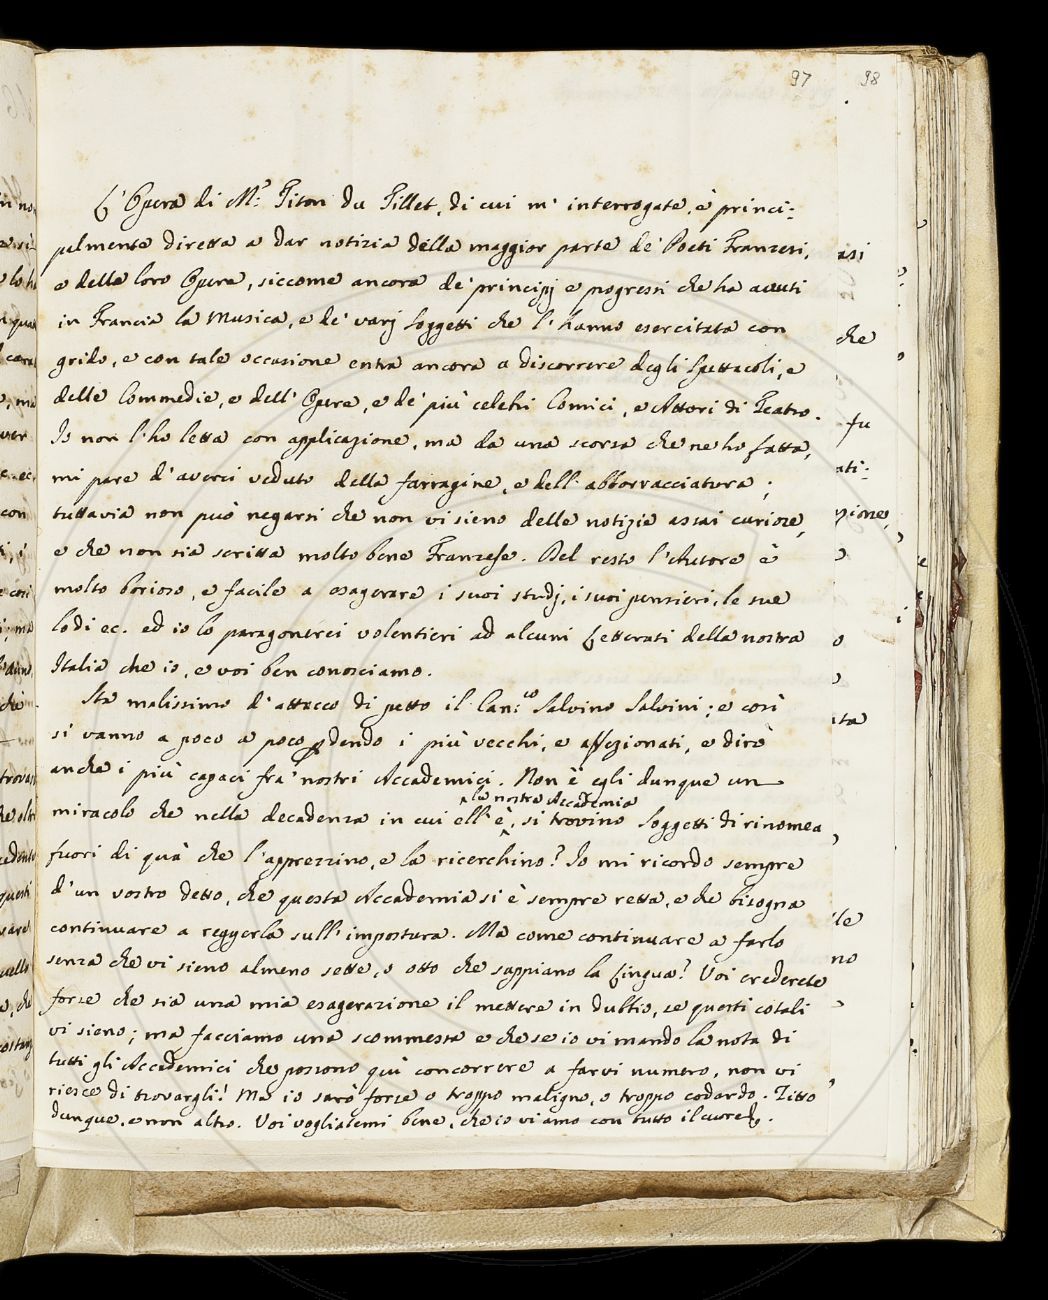 97
98
L'Opera di M.r Titon du Tillet, di cui m' interrogate, è princi:
palmente diretta a dar notizia della maggior parte de' Poeti Franzesi,
e delle loro Opere, siccome ancora de' principj e progressi che ha avuti
in Francia la Musica, e de' varj soggetti che l' hanno esercitata con
grido, e con tale occasione entra ancora a discorrere degli Spettacoli, e
delle Commedie, e dell' Opere, e de' più celebri Comici, e Attori di Teatro.
Io non l'ho letta con applicazione, ma da una scorsa che ne ho fatta,
mi pare d' averci veduto della farragine, e dell' abborracciatura;
tuttavia non può negarsi che non vi sieno delle notizie assai curiose,
e che non sia scritta molto bene Franzese. Del resto l'Autore è
molto borioso, e facile a esagerare i suoi studj, i suoi pensieri, le sue
lodi ec. ed io lo paragonerei volentieri ad alcuni Letterati della nostra
Italia che io, e voi ben conosciamo.
Sta malissimo d' attacco di petto il Can.co Salvino Salvini; e così
si vanno a poco a poco perdendo i più vecchi, e affezionati, e dirò
anche i più capaci fra' nostri Accademici. Non è egli dunque un
la nostra Accademia
miracolo che nella decadenza in cui ell' è, si trovino soggetti di rinomea
fuori di quà che l'apprezzino, e la ricerchino? Io mi ricordo sempre
d'un vostro detto, che questa Accademia si è sempre retta, e che bisogna
continuare a reggerla sull' impostura. Ma come continuare a farlo
senza che vi sieno almeno sette, o otto che sappiano la Lingua? Voi crederete
forse che sia una mia esagerazione il mettere in dubbio, se questi cotali
vi sieno; ma facciamo una scommessa e che se io vi mando la nota di
tutti gli Accademici che possono quì concorrere a farvi numero, non vi
riesce di trovargli! Ma io sarò forse o troppo maligno, o troppo codardo. Zitto
dunque, e non altro. Voi vogliatemi bene, che io vi amo con tutto il cuore.
asi
che
fu
ati:
zione,
o
ta
le
no